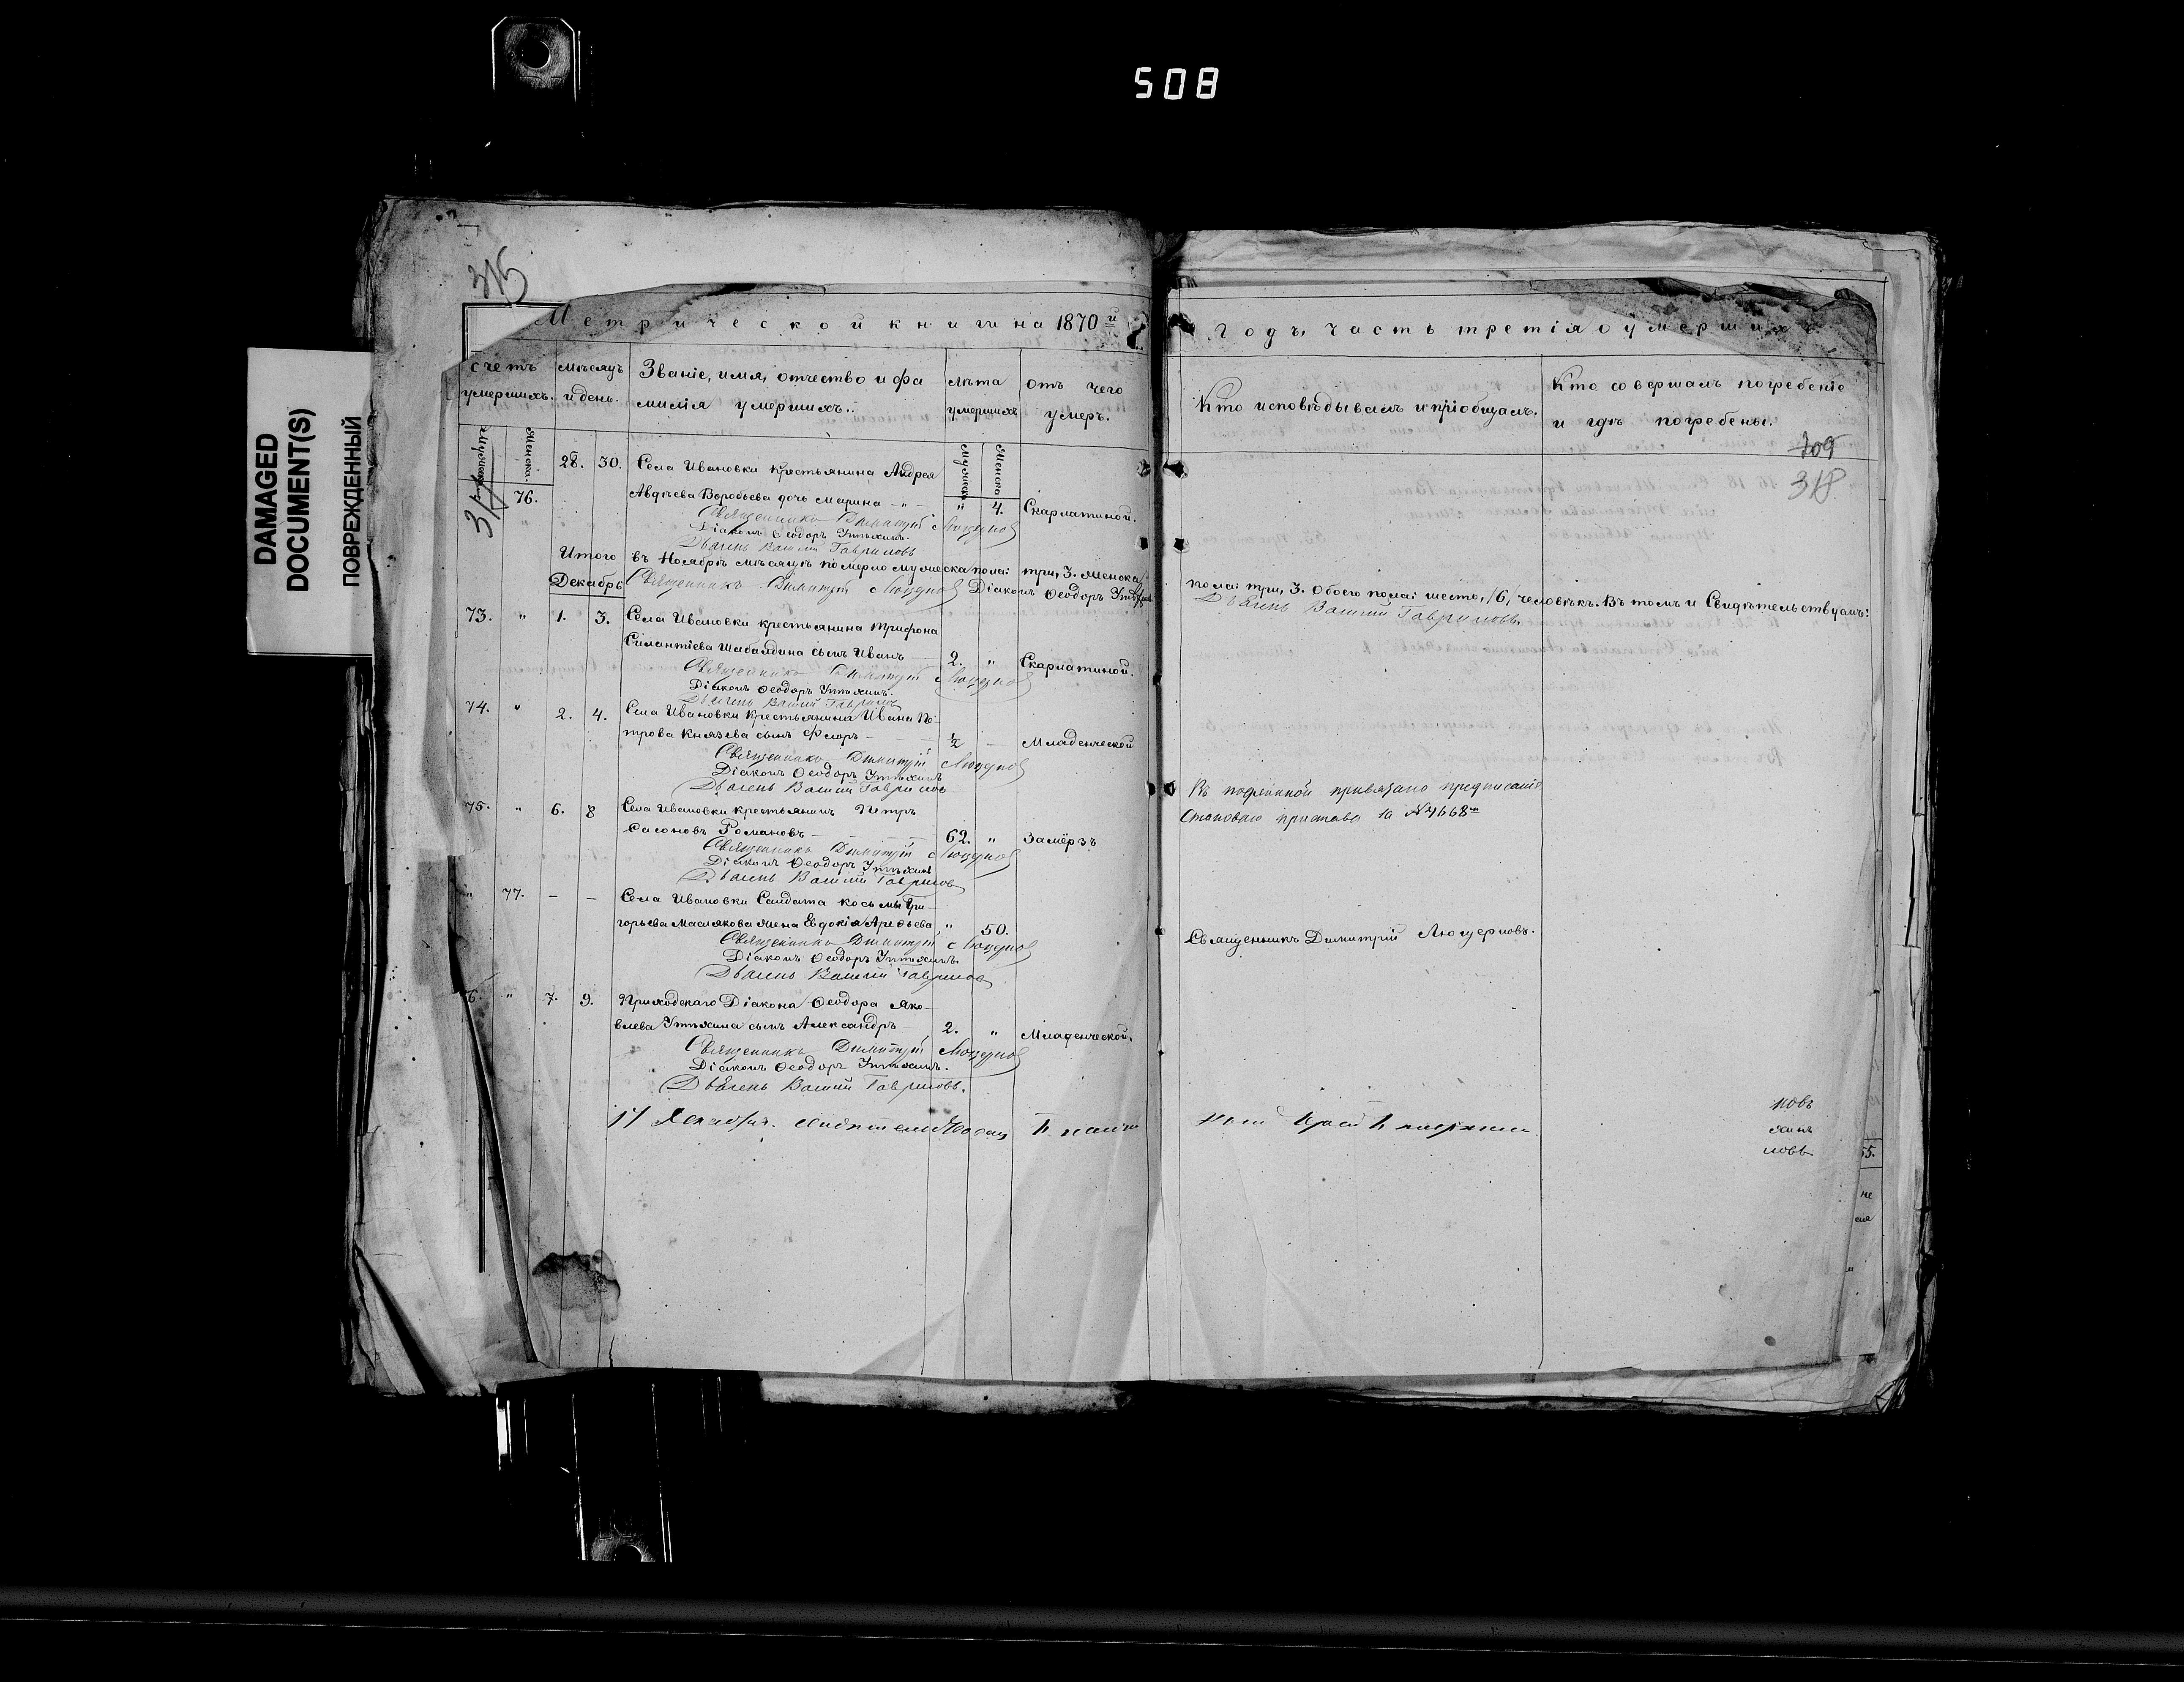 508
DAMAGED
DOCUMENT(S)
ПОВРЕЖДЕННЫЙ
315
Метрической книги на 1870й
счетъ умершихъ.
мѣсяцъ и день.
Званіе, имя, отчество и фамилія умершихъ.
лѣта умершихъ
отъ чего умеръ.
Мужеска
Женска.
Мужеска
Женска
28. 30. Села Ивановки крестьянина Андрея
76. Авдѣева Воробьева дочь Марина - „ - „ 4. Скарлатиной.
Священникъ Димитрій Люцерновъ
Діаконъ Ѳеодоръ Утѣхинъ.
Дьячекъ Василій Гавриловъ
Итого въ Ноябрѣ мѣсяцѣ померло мужеска пола: три, 3. женска
Декабрь Священникъ Димитрій Люцерновъ Діаконъ Ѳеодоръ Утѣхинъ
73. „ 1. 3. Села Ивановки крестьянина Трифона
Силантіева Шабалдина сынъ Иванъ — 2. „ Скарлатиной.
Священникъ Димитрій Люцерновъ
Діаконъ Ѳеодоръ Утѣхинъ.
Дьячекъ Василій Гавриловъ
74. „ 2. 4. Села Ивановки крестьянина Ивана Пе-
трова Князева сынъ Флоръ - ½ — Младенческой
Священникъ Димитрій Люцерновъ
Діаконъ Ѳеодоръ Утѣхинъ
Дьячекъ Василій Гавриловъ
75. „ 6. 8 Села Ивановки крестьянинъ Петръ
Сасоновъ Романовъ — 62. „ Замёрзъ
Священникъ Димитрій Люцерновъ
Діаконъ Ѳеодоръ Утѣхинъ
Дьячекъ Василій Гавриловъ
„ 77. — — Села Ивановки Солдата Космы Гри-
горьева Маслякова жена Евдокія Арефьева „ 50.
Священникъ Димитрій Люцерновъ
Діаконъ Ѳеодоръ Утѣхинъ.
Дьячекъ Василій Гавриловъ
6. „ 7. 9. Приходскаго Діакона Ѳеодора Яко-
влева Утѣхина сынъ Александръ — 2. „ Младенческой.
Священникъ Димитрій Люцерновъ
Діаконъ Ѳеодоръ Утѣхинъ.
Дьячекъ Василій Гавриловъ.
17 Декабря.
Годъ, часть третія о умершихъ
Кто исповѣдывалъ и пріобщалъ.
Кто совершалъ погребеніе
и гдѣ погребены.
709
318
пола: три, 3. Обоего пола: шесть, /6/, человѣкъ. Въ томъ и Свидѣтельствуемъ:
Дьячекъ Василій Гавриловъ.
Въ подлинной привязано предписаніе
Становаго пристава за № 4668м
Священникъ Димитрій Люцерновъ.
новъ
хинъ
ловъ
55.
не